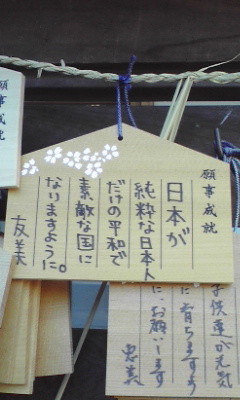 願事成就
日本が
純粋な日本人
だけの平和で
素敵な国に
なりますように。
友美
願事成就
子供達が元気
に育ちますよう
に、お願いします
恵美
願事成就